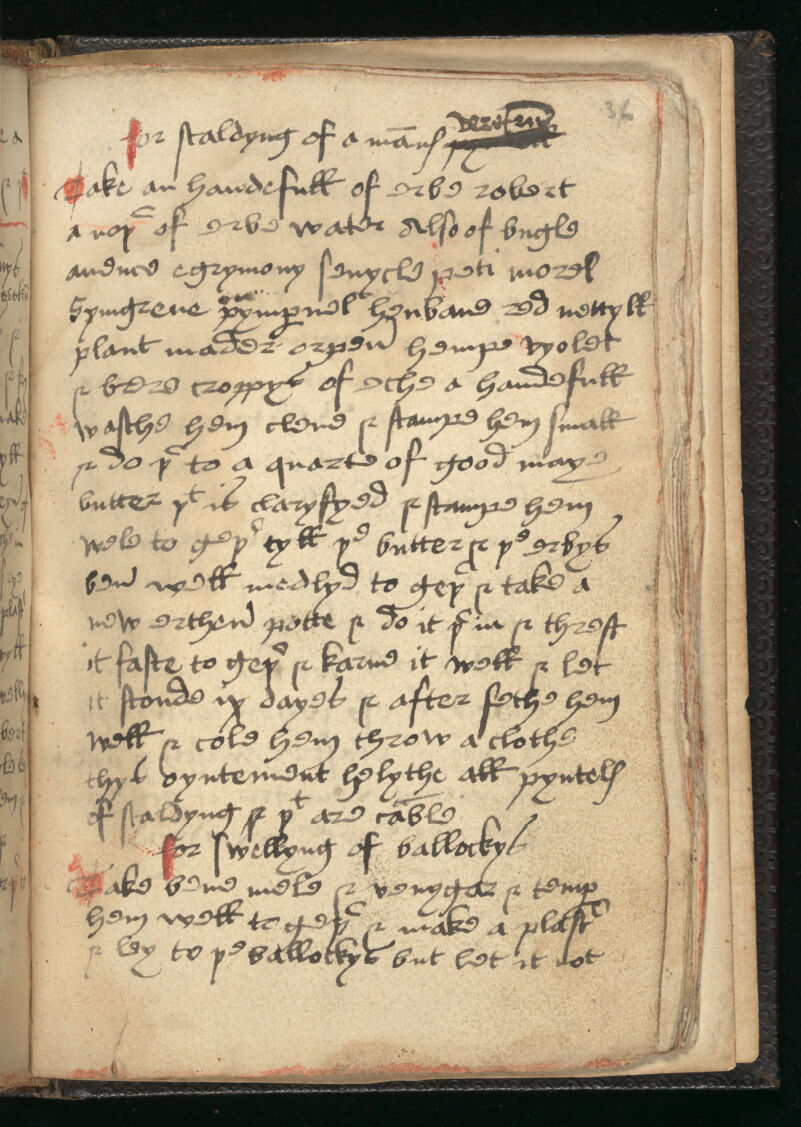 36
For scaldyng of a mans
Take an handefull of erbe robert
a noþ of erbe water Also of bugle
auence egrymony senycle peti morel
Syngrene pympernel henbane red nettyll
plant mader orpen hempe vyolet
& bere croppys of eche a handefull
wasche hem clene & stampe hem small
& do þ to a quarte of good maye
butter þt is claryfyed & stampe hem
wele to geþ tyll þe butter & þe erbys
ben well medlyd to geþ & take a
new erthen potte & do it þ in & threst
it faste to geþ & karue it well & let
it stonde ix dayes & after sethe hem
well & cole hem throw a clothe
thys oyntement helythe all pyntels
of scaldyng & þt are cable
For swellyng of ballockys
Take bene mele & venygar & temp
hem well to geþ & make a plast
& ley to þe ballockys but let it not